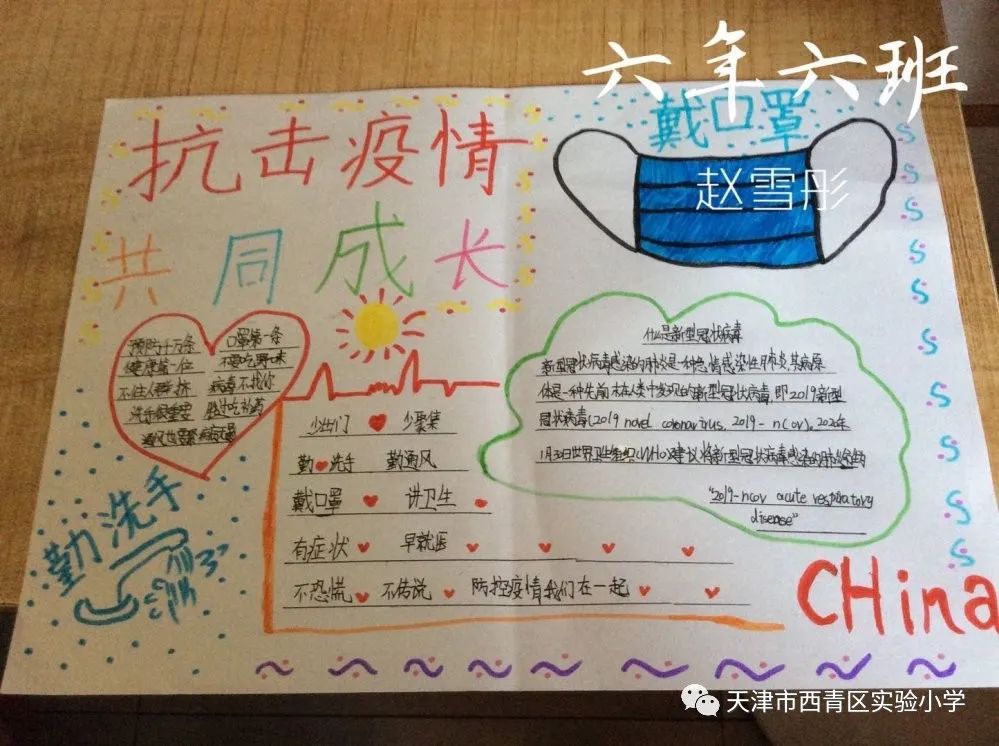 六年六班
戴口罩
赵雪彤
抗击疫情
共同成长
预防千万条 口罩第一条
健康第一位 不要吃野味
不往人群挤 病毒不找你
洗手很重要 胜过吃补药
通风也要
少出门 少聚集
勤洗手 勤通风
戴口罩 讲卫生
有症状 早就医
不恐慌 不传说 防控疫情我们在一起
什么是新型冠状病毒
新型冠状病毒感染的肺炎是一种急性感染性肺炎,其病原
体是一种先前未在人类中发现的新型冠状病毒,即2019新型
冠状病毒(2019 novel coronavirus, 2019-nCov)。2020年
1月30日世界卫生组织(WHO)建议将新型冠状病毒感染的肺炎
"2019-ncov acute respiratory
disease"
勤洗手
CHina
天津市西青区实验小学